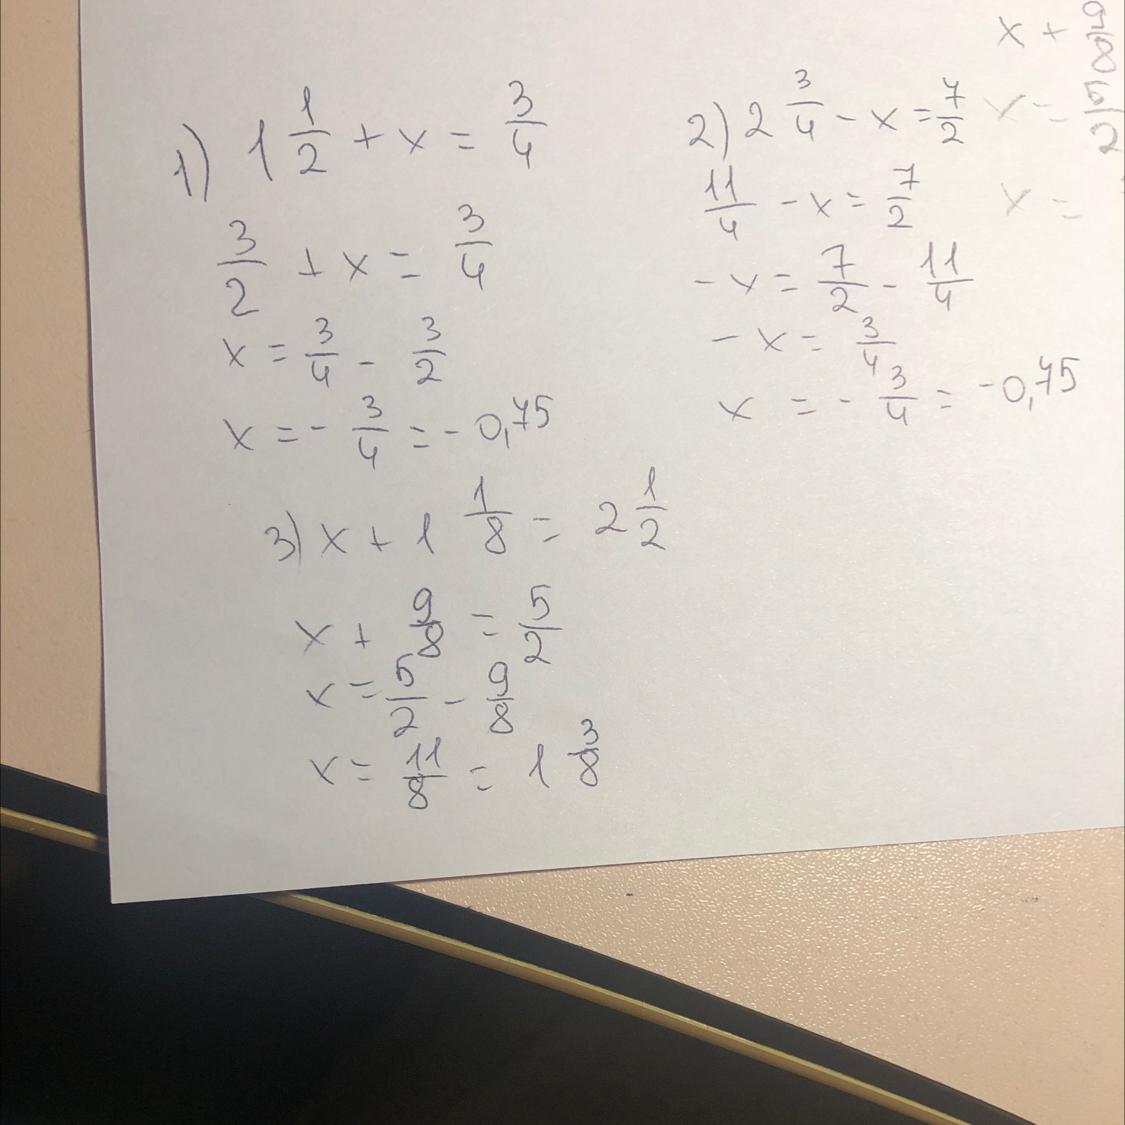 1) 1 1/2 + x = 3/4
3/2 + x = 3/4
x = 3/4 - 3/2
x = - 3/4 = - 0,75
2) 2 3/4 - x = 7/2
11/4 - x = 7/2
- x = 7/2 - 11/4
- x = 3/4
x = - 3/4 = -0,75
3) x + 1 1/8 = 2 1/2
x + 9/8 = 5/2
x = 5/2 - 9/8
x = 11/8 = 1 3/8
x +
x =
x =